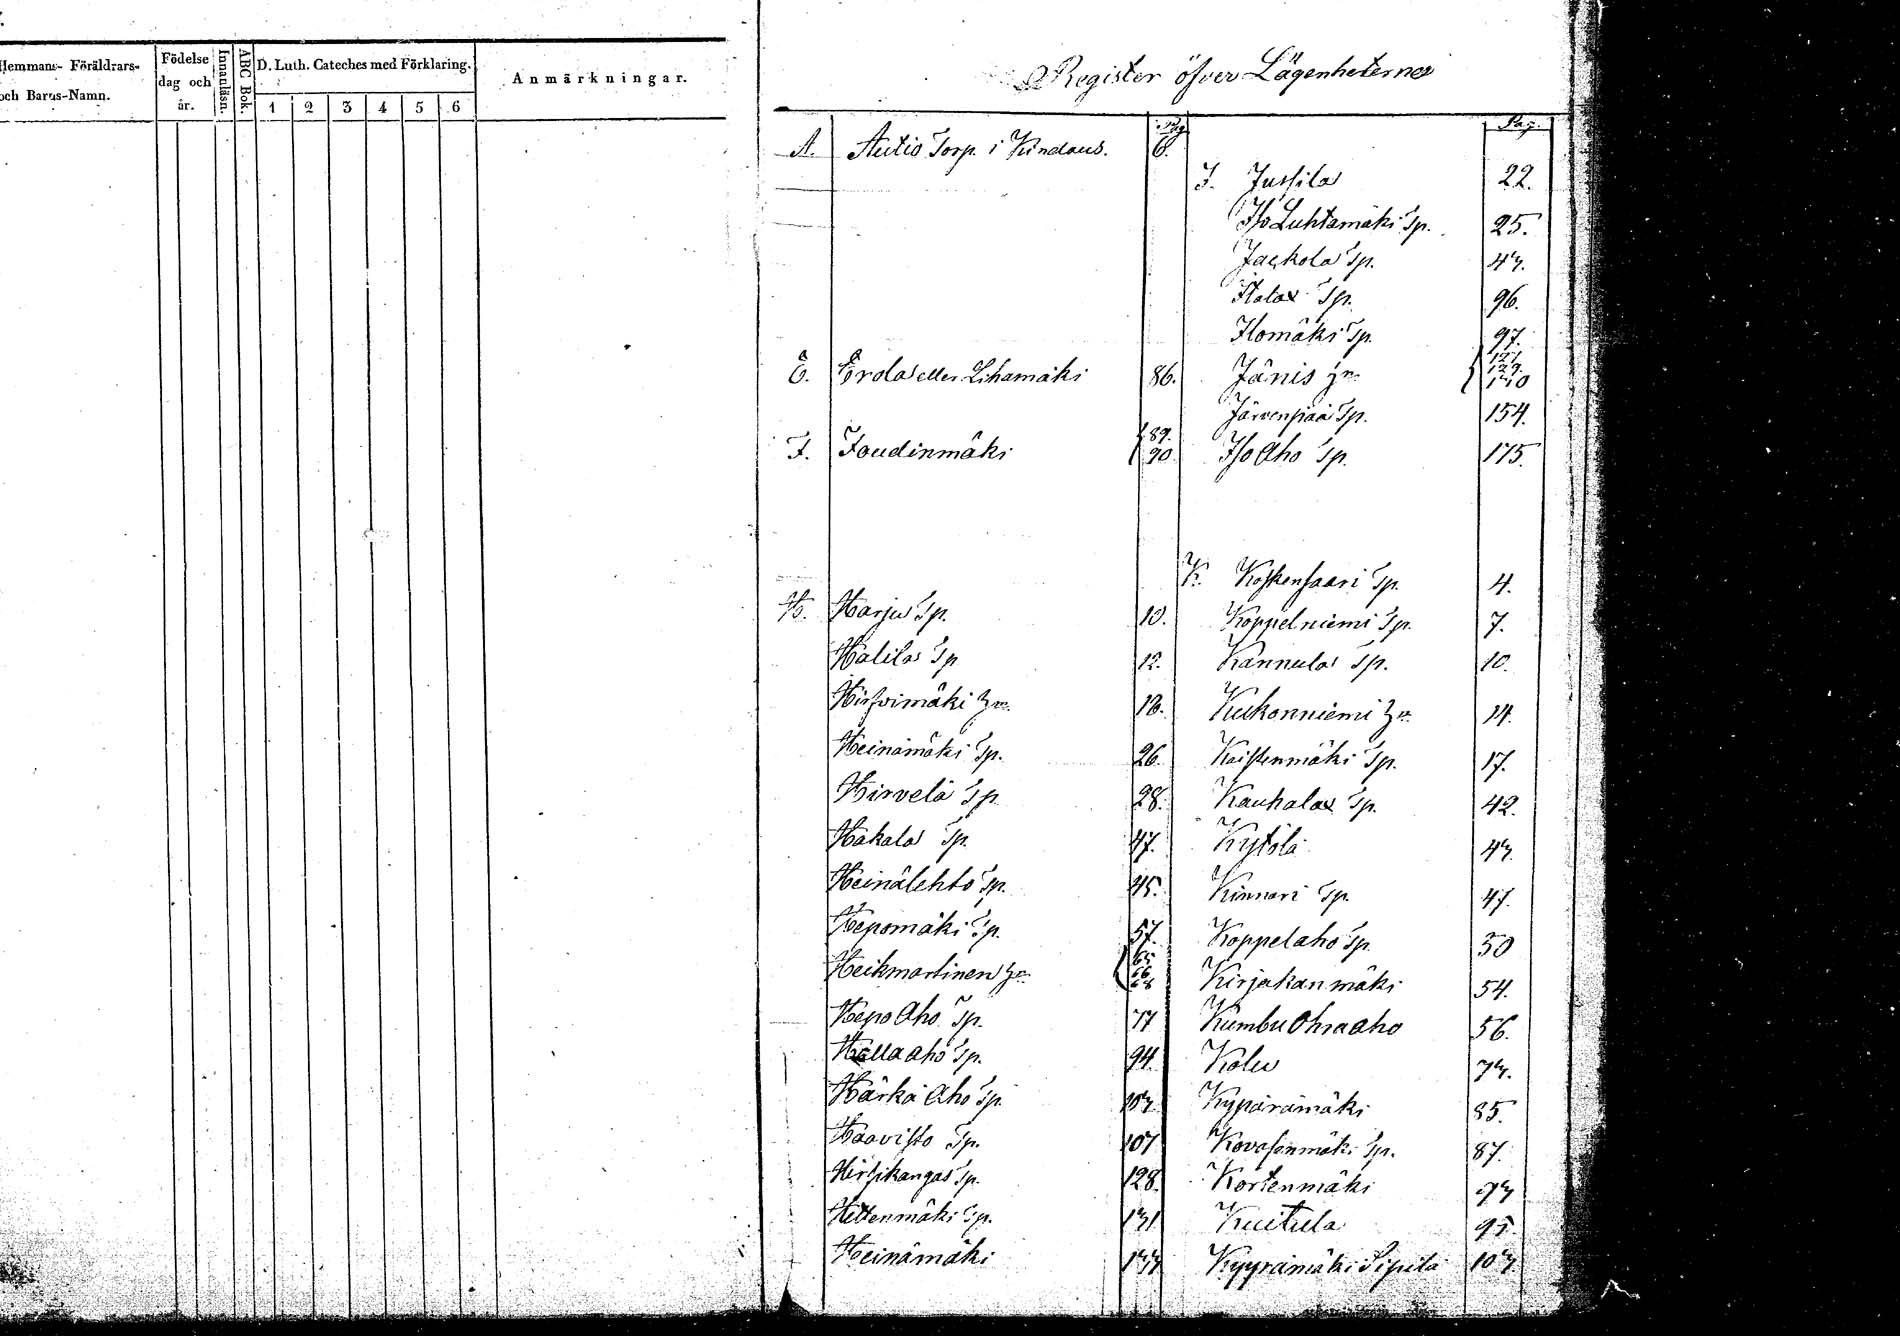 Hemmans- Föräldrars-
och Barns-Namn.
Födelse
dag och
år.
Innanläsn.
ABC Bok.
D. Luth. Cateches med Förklaring.
1 2 3 4 5 6
Anmärkningar.
Register öfver Lägenheterna
Pag
A. Autio Torp. i Kindaus. 6.
E. Erola eller Lihamäki 86.
F. Foudinmäki 89. 90
H. Harju Tp. 10.
Halila Tp 12.
Hirfvimäki 18.
Heinämäki Tp. 26.
Hirvelä Tp. 28.
Hakala Tp. 47.
Heinälehto Tp. 45.
Hepomäki Tp. 57.
Heikmartinen 65 66 68
Hepo Aho Tp. 77
Hallaaho Tp. 94.
Härkä Aho Tp.
Haavisto Tp. 107
Hirsikangas Tp. 128.
Hettenmäki Tp. 131
Heinämäki
Pag.
J. Jussila 22.
Iso Luhtamäki Tp. 25.
Jackola Tp. 43.
Tp. 96.
Ilomäki Tp. 97.
Jänis
Järvenpää Tp. 154.
Iso Aho Tp. 175.
K. Koskensaari Tp. 4.
Koppelniemi Tp. 7.
Kannula Tp. 10.
Kukonniemi 14.
Kaiskenmäki Tp. 17.
Kauhala Tp. 42.
Kytölä 43.
Kinnari Tp. 47.
Koppelaho Tp. 50
Kirjakanmäki 54.
Kumbu Ohraaho 56.
Kolu 73.
Kypärämäki 85.
Kovasenmäki Tp. 87.
Kortenmäki 93
Kuitula 95.
Kyyrämäki Sipilä 103.